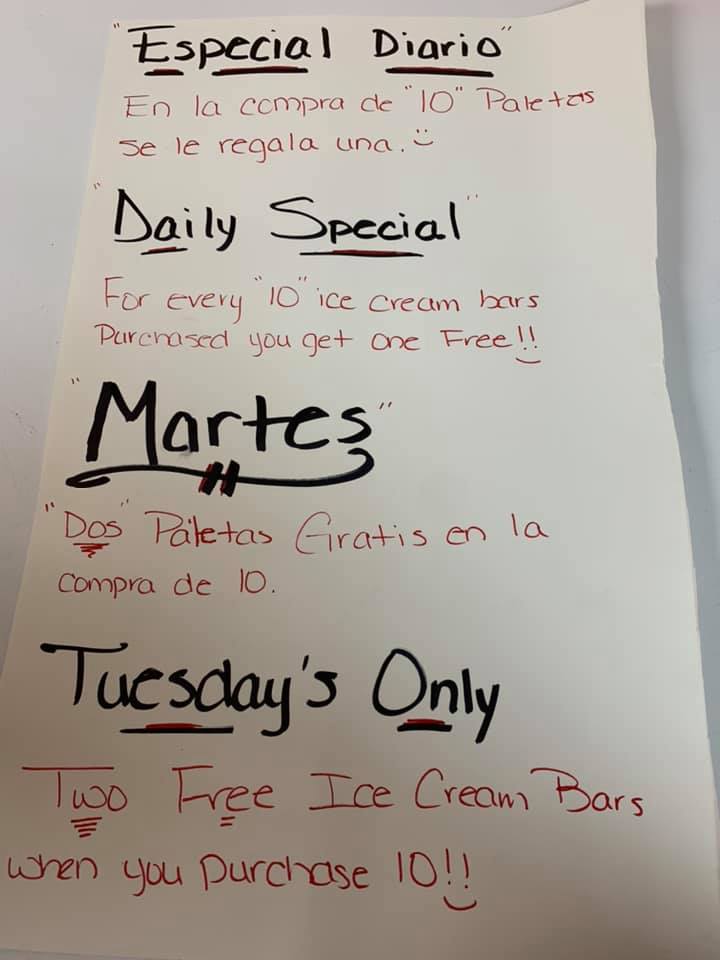 "Especial Diario"
En la compra de "10" Paletas
se le regala una.
"Daily Special"
For every "10" ice cream bars
Purchased you get one Free!!
"Martes"
"Dos" Paletas Gratis en la
compra de 10.
Tuesday's Only
Two Free Ice Cream Bars
when you purchase 10!!